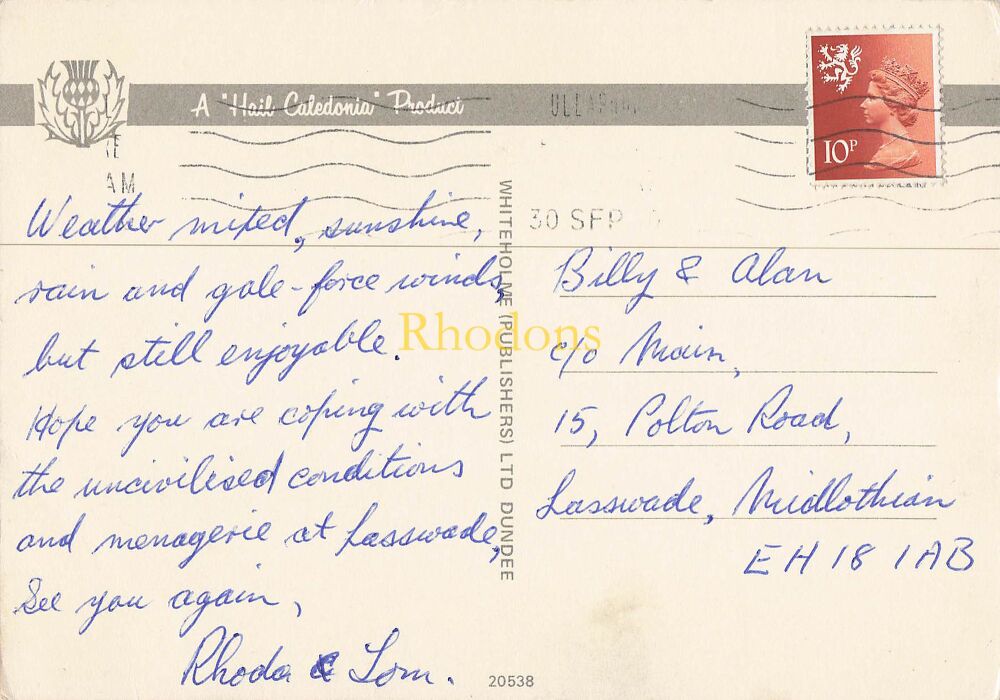 A "Hail Caledonia" Product
AM
30 SEP
10P
Weather mixed, sunshine,
rain and gale-force winds,
but still enjoyable.
Hope you are coping with
the uncivilised conditions
and menagerie at Lasswade,
See you again,
Rhoda & Tom.
WHITEHOLME (PUBLISHERS) LTD DUNDEE
Billy & Alan
c/o Main,
15, Polton Road,
Lasswade, Midlothian
EH18 1AB
Rhodons
20538